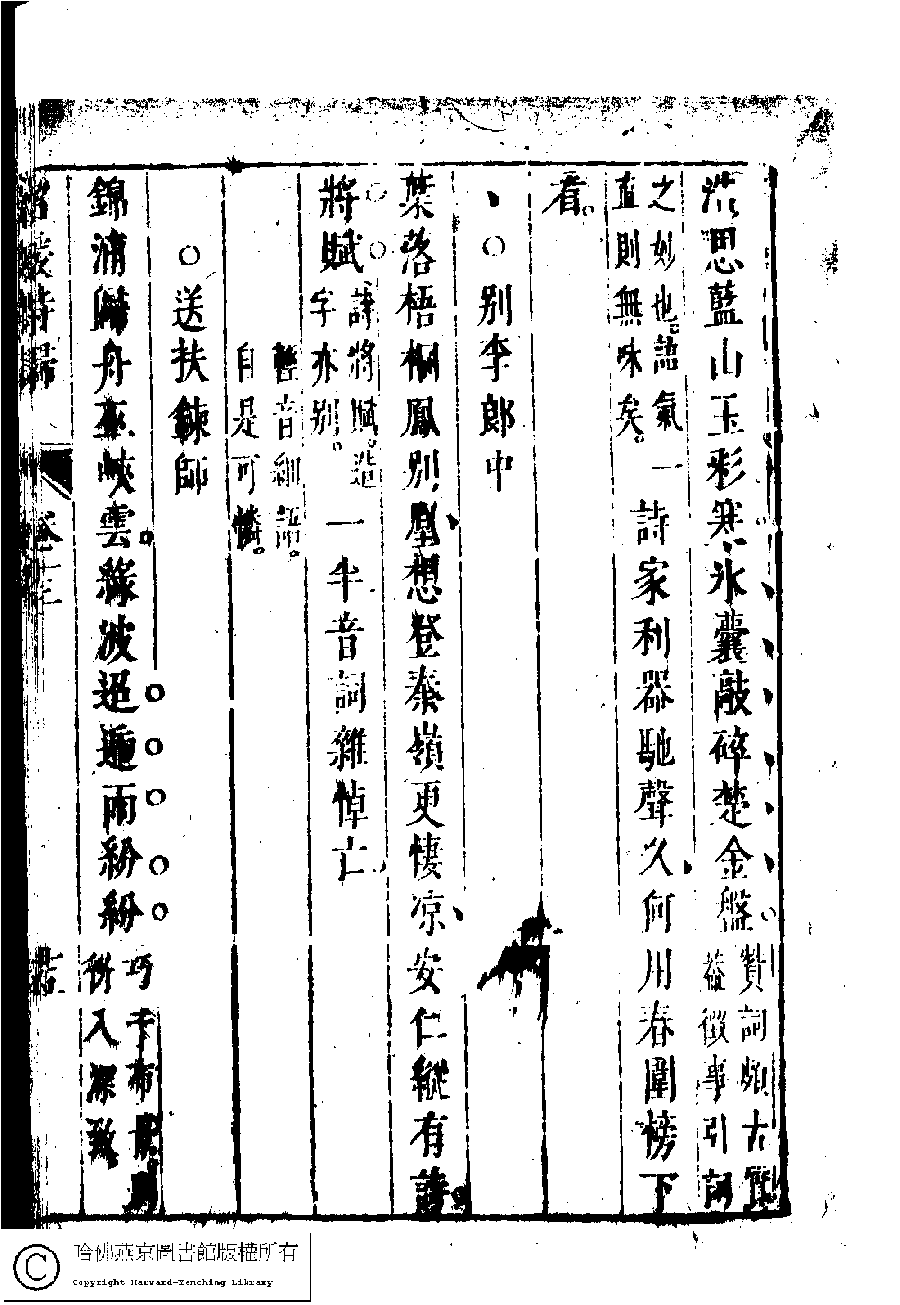 思藍山玉彩寒冰囊敲碎楚金盤贊詞頗古質
蓋徵事引詞
之妙也語氣
直則無味矣一詩家利器馳聲久何用春闈榜下
看
○別李郎中
葉落梧桐鳳別凰想登秦嶺更悽凉安仁縱有詩
將賦詩將賦造
字亦別一半音詞雜悼亡
輕音細語
自是可憐
○送扶鍊師
錦浦歸舟巫峽雲綠波迢遞雨紛紛巧于布景
入深致
名媛詩歸
卷十三
哈佛燕京圖書館版權所有
Copyright Harvard-Yenching Library